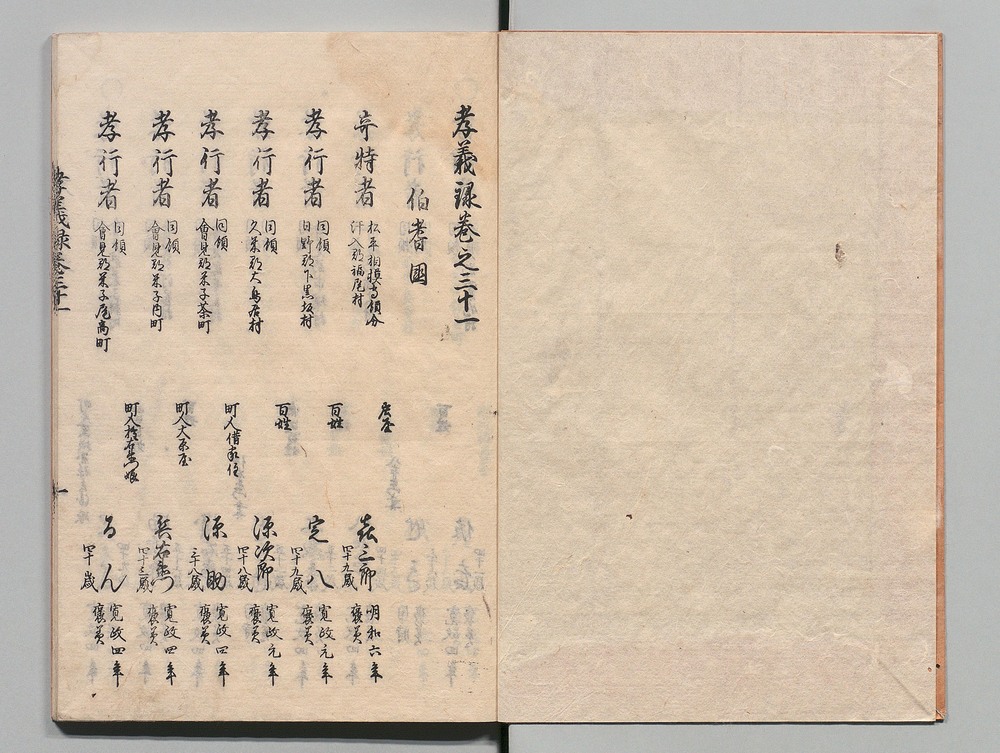 孝義録巻之三十一
伯耆國
奇特者
松平相模守領分
汗入郡福尾村
庄屋
㐂三郎
四十九歳
明和六年
褒美
孝行者
同領
日野郡下黒坂村
百姓
定八
四十九歳
寛政元年
褒美
孝行者
同領
久米郡大鳥居村
百姓
源次郎
四十八歳
寛政元年
褒美
孝行者
同領
會見郡米子茶町
町人借家住
源助
三十八歳
寛政四年
褒美
孝行者
同領
會見郡米子内町
町人大系屋
兵右衛門
四十三歳
寛政四年
褒美
孝行者
同領
會見郡米子尾高町
町人
ん
四十歳
寛政四年
褒美
孝義録巻三十一
一